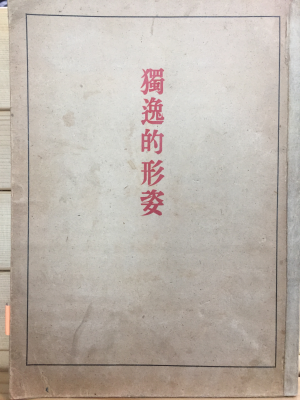 獨逸的形姿